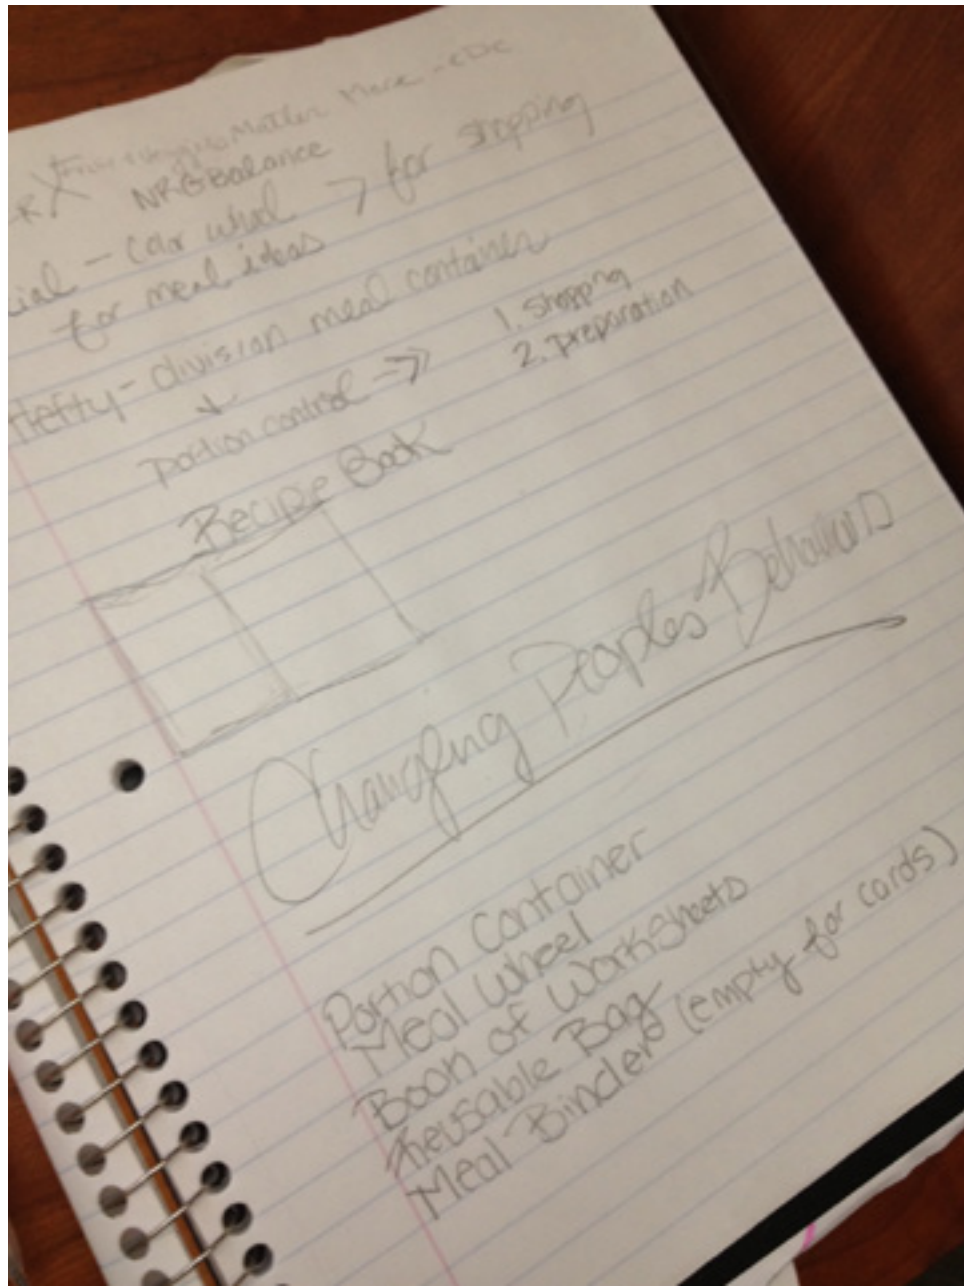 Fruits & Veggies Matter More - CDC
RX NRGBalance
ial - Color wheel > for shopping
for meal ideas
Hefty - division meal container
↓
portion control ->> 1. Shopping
2. preparation
Recipie Book
Changing Peoples Behaviors
Portion Container
Meal Wheel
Book of Worksheets
Reusable Bag
Meal Binder (empty for cards)